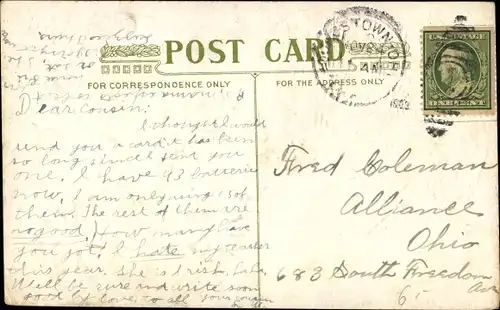 POST CARD
FOR CORRESPONDENCE ONLY
FOR THE ADDRESS ONLY
U.S. POSTAGE
ONE CENT
Dear Cousin:
I thought I would
send you a card it has been
so long since I sent you
one. I have 43 batteries
now. I am only using 15 of
them. The rest of them are
no good. How many have
you got? I hate my teacher
this year. She is Irish.
Well be sure and write soon
good by love to all your cousin
Fred Coleman
Alliance
Ohio
683 South Freedom
Ave